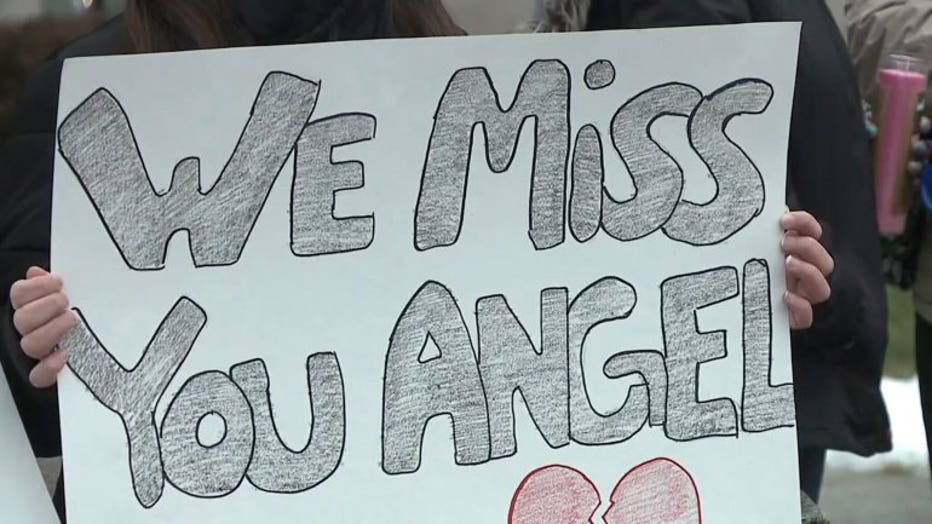 We Miss
You Angel